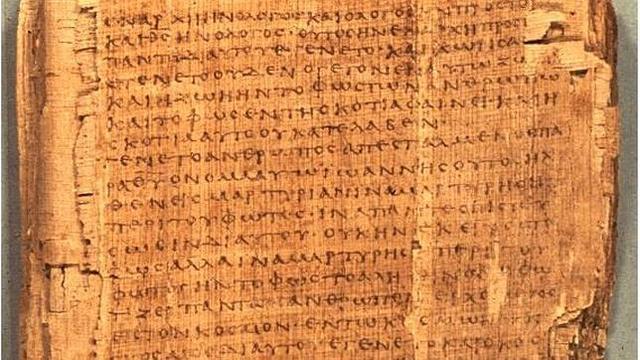 ΕΝΑΡΧΗΗΝΟΛΟΓΟϹΚΑΙΟΛΟΓΟϹ
ΚΑΙΘϹΗΝΟΛΟΓΟϹ·ΟΥΤΟϹΗΝΕΝΑΡΧΗΠΡΟϹ
ΠΑΝΤΑΔΙΑΥΤΟΥΕΓΕΝΕΤΟ·ΚΑΙΧΩΡΙϹ
ΕΓΕΝΕΤΟΟΥΔΕΝΟΓΕΓΟΝΕΝΕΝΑΥΤΩΖΩΗ
ΚΑΙΗΖΩΗΗΝΤΟΦΩϹΤΩΝΑΝΘΡΩΠΩ
ΚΑΙΤΟΦΩϹΕΝΤΗϹΚΟΤΙΑΦΑΙΝΕΙ·ΚΑΙΗ
ϹΚΟΤΙΑΑΥΤΟΟΥΚΑΤΕΛΑΒΕΝ·
ΕΓΕΝΕΤΟΑΝΘΡΩΠΟϹΑΠΕϹΤΑΛΜΕΝΟϹΠΑ
ΡΑΘΥΟΝΟΜΑΑΥΤΩΙΩΑΝΝΗϹΟΥΤΟϹΗΛ
ΘΕΝΕΙϹΜΑΡΤΥΡΙΑΝΙΝΑΜΑΡΤΥΡΗϹΗ
ΠΕΡΙΤΟΥΦΩΤΟϹ·ΙΝΑΠΑΝΤΕϹΠΙϹΤΕΥ
ϹΩϹΙΝΔΙΑΥΤΟΥ·ΟΥΚΗΝΕΚΕΙΝΟϹΤΟ
ΦΩϹΑΛΛΑΙΝΑΜΑΡΤΥΡΗϹΗΠΕΡΙΤΟΥ
ΦΩΤΟϹΗΝΤΟΦΩϹΤΟΑΛΗΘΙΝΟΝΟΦΩ
ΤΙΖΕΙΠΑΝΤΑΑΝΘΡΩΠΟΝΕΡΧΟΜΕΝΟΝ
ΕΙϹΤΟΝΚΟϹΜΟΝ·ΕΝΤΩΚΟϹΜΩΗΝ
ΔΙΑΥΤΟΥΕΓΕΝΕΤΟΚΑΙΟΚΟϹ